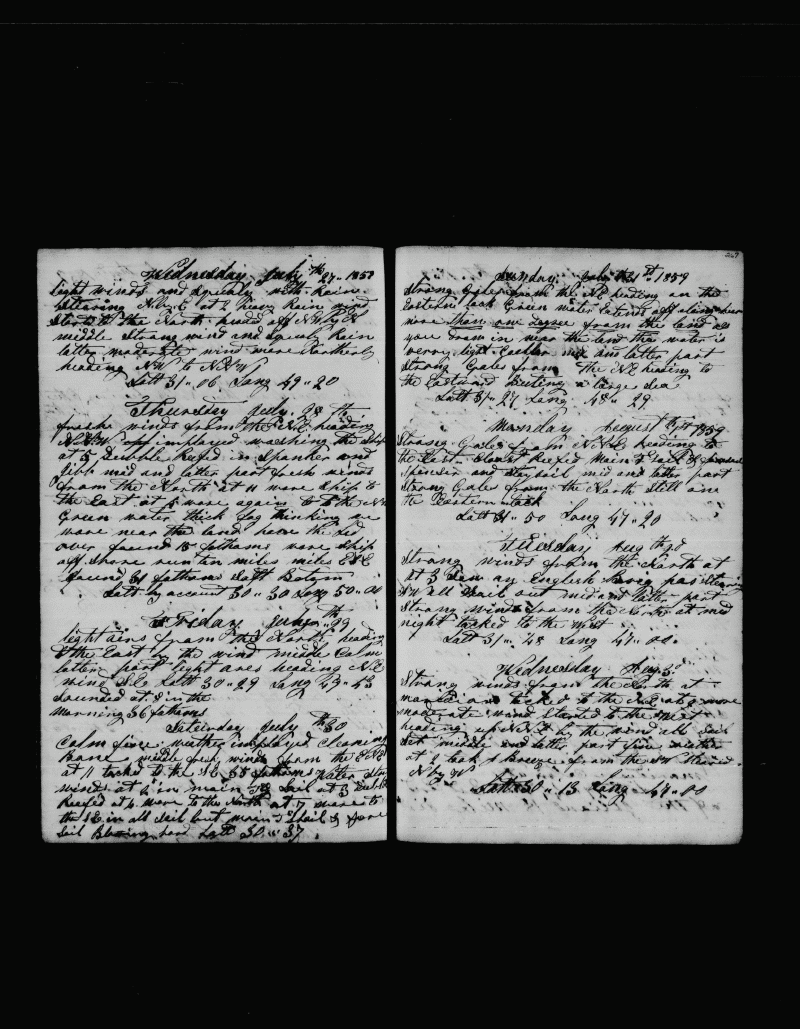 Wednesday July th 27" 1859
light winds and squally with Rain
Stearing N by E at 2 heavy Rain wind
to the North headed off N W by N
middle Strong wind and squaly Rain
latter moderate wind more Northerly
heading NW to NNW
Latt 31" 06 Long 49" 20
Thursday July 28 th
fresh winds from the NE heading
NNW imployed washing the ship
at 5 Dubble Reefed in Spanker and
jibb mid and latter part fresh winds
from the North at 11 wore ship to
the East at 5 wore again to the NW
Green water thick fog thinking we
ware near the land hove the Led
over found 15 fathoms wore ship
off shore run ten miles miles ESE
found 61 fathoms Soft Botom
Latt by account 30" 30 Long 50" 00
Friday July th 29
light airs from the North heading
to the East by the wind middle Calm
latter part light ares heading NE
wind SE Latt 30" 29 Long 49" 43
Sounded at 8 in the
Morning 36 fathoms
Saturday July th 30
Calm fine weather imployed Cleaning
Bone middle fresh winds from the ENE
at 11 tacked to the SE 65 fathoms Water Strong
winds at 2 in main Sail at 3 Dubble
Reefed at 4 wore to the North at 7 wore to
the SE in all Sail but main T Sail & fore
Sail Blowing hard Latt 30" 37
267
Sunday July th 31 1859
Strong Gales from the NE heading on the
Eastern tack Green water Extends off along heur
more than one degree from the land as
you draw in near the land the water is
verry light Couller mid and latter part
Strong Gales from the NE heading to
the Eastward Butting a large Sea
Latt 31" 27 Long 48" 29
Monday August 1st 1859
Strong Gales from NNE heading to
the East Close Reefed Main T Sail &
Spencer and stay sail mid and latter part
Strong Gales from the North Still on
the Eastern tack
Latt 31" 50 Long 47" 20
Tuesday Aug th 2d
Strong winds from the North at
at 3 Saw an English Barq pas Stearing
SW all Sail out mid and latter part
Strong winds from the North at mid
night tacked to the West
Latt 31" 48 Long 47" 00
Wednesday Aug 3d
Strong winds from the North at
tacked to the more
moderate wind Started to the West
heading up NNE by the wind all Sail
Set middle and latter part fine weather
at 2 took a Breeze from the SW Steared
N by W
Latt 30" 13 Long 47" 00